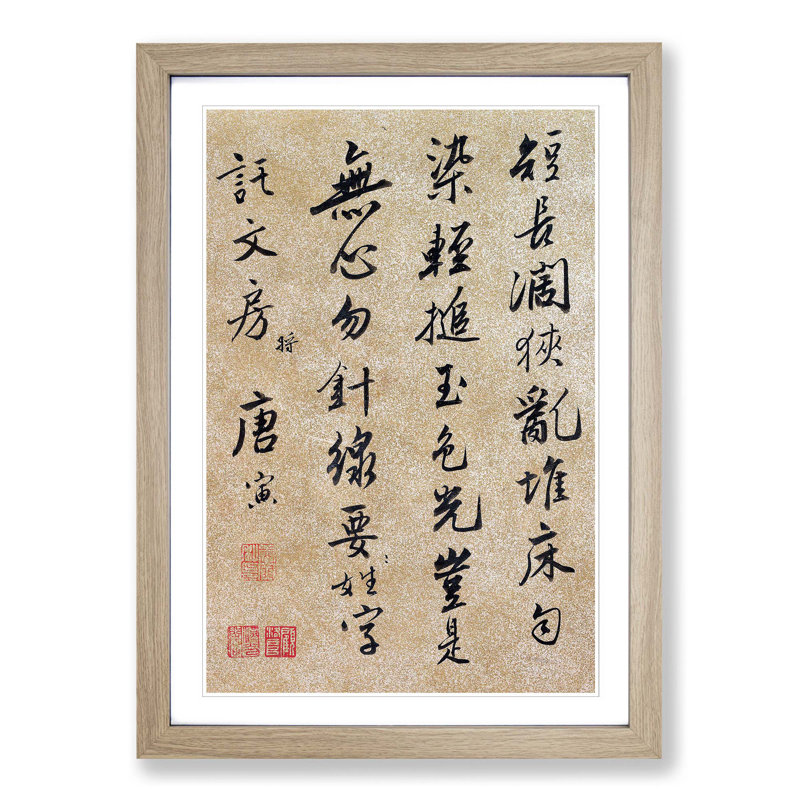 短長濶狹亂堆床匀
染輕搥玉色光豈是
無心勿針線要姓字
託文房
將
唐寅